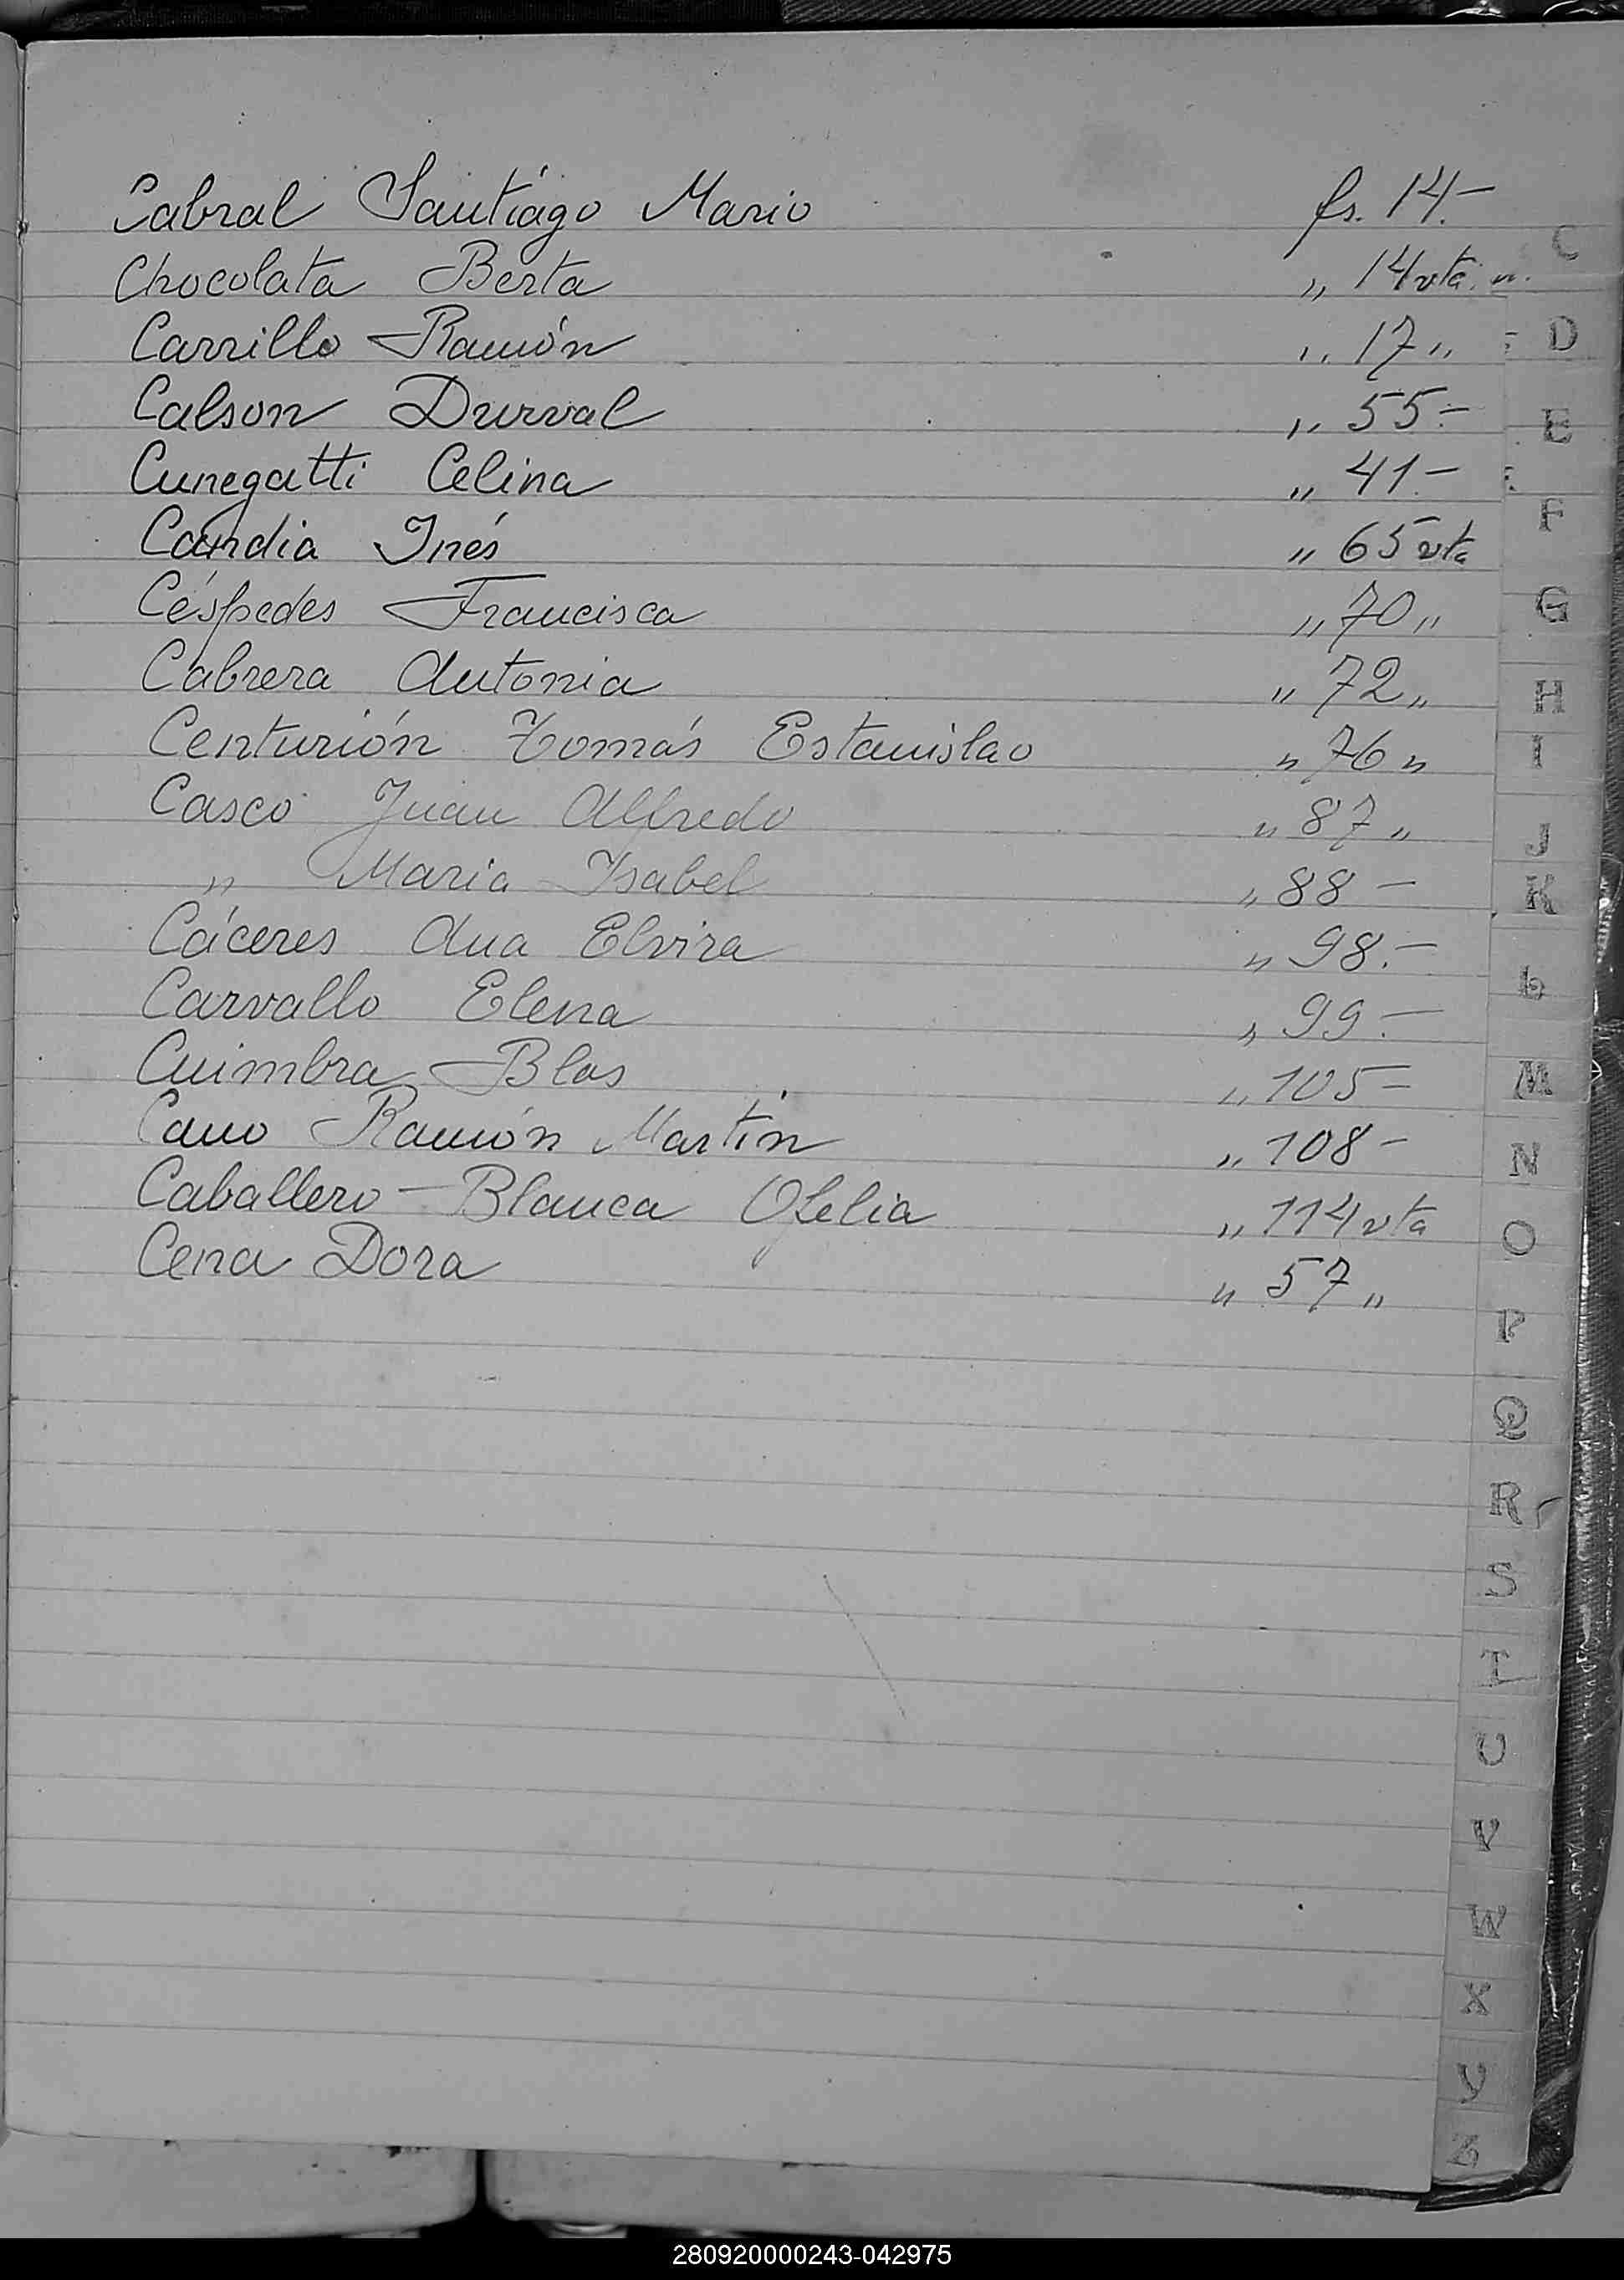 Cabral Santiágo Mario fs. 14.-
Chocolata Berta „ 14 vta. „.
Carrillo Ramón „ 17 „
Calson Durval „ 55.-
Cunegatti Celina „ 41.-
Candia Inés „ 65 vta
Céspedes Francisca „ 70 „
Cabrera Antonia „ 72 „
Centurión Tomás Estanislao „ 76 „
Casco Juan Alfredo „ 87 „
„ Maria Isabel „ 88 -
Cáceres Ana Elvira „ 98.-
Carvallo Elena „ 99.-
Cuimbra Blas „ 105 -
Cano Ramón Martín „ 108 -
Caballero Blanca Ofelia „ 114 vta
Cena Dora „ 57 „
C
D
E
F
G
H
I
J
K
L
M
N
O
P
Q
R
S
T
U
V
W
X
Y
Z
280920000243-042975